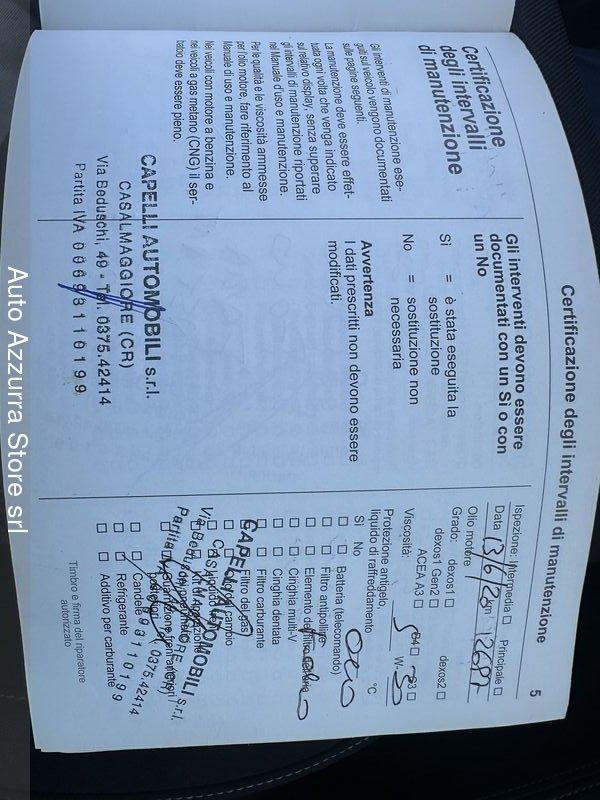 Certificazione degli intervalli di manutenzione
5
Certificazione
degli intervalli
di manutenzione
Gli interventi di manutenzione ese-
guiti sul veicolo vengono documentati
sulle pagine seguenti.
La manutenzione deve essere effet-
tuata ogni volta che venga indicato
sul relativo display, senza superare
gli intervalli di manutenzione riportati
nel Manuale d'uso e manutenzione.
Per le qualità e le viscosità ammesse
per l'olio motore, fare riferimento al
Manuale di uso e manutenzione.
Nei veicoli con motore a benzina e
nei veicoli a gas metano (CNG) il ser-
batoio deve essere pieno.
CAPELLI AUTOMOBILI s.r.l.
CASALMAGGIORE (CR)
Via Beduschi, 49 - Tel. 0375.42414
Partita IVA 00693110199
Gli interventi devono essere
documentati con un Sì o con
un No
Sì = è stata eseguita la
sostituzione
No = sostituzione non
necessaria
Avvertenza
I dati prescritti non devono essere
modificati.
Ispezione: Intermedia Principale
Data 13/6/20
Olio motore
Grado: dexos1 dexos2
dexos1 Gen2
ACEA A3
Viscosità: 5 W-30
Protezione antigelo,
liquido di raffreddamento °C
Sì No
Batteria (telecomando)
Filtro antipolline
Elemento del
Cinghia multi-V
Cinghia dentata
Filtro carburante
Filtro del gas
Candele
Refrigerante
Additivo per carburante
CAPELLI AUTOMOBILI s.r.l.
Partita
0375.42414
Timbro e firma del riparatore
autorizzato
Auto Azzurra Store srl